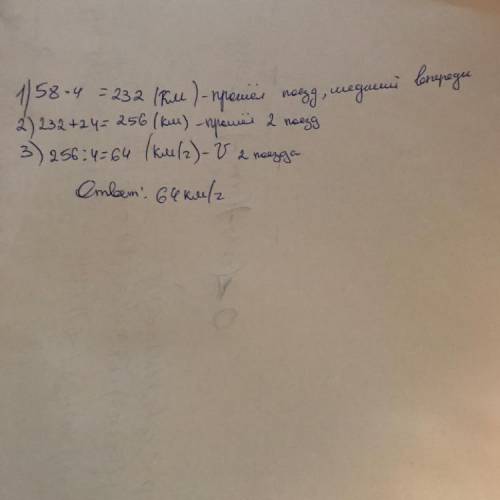 1) 58 · 4 = 232 (км) - прошёл поезд, шедший впереди
2) 232 + 24 = 256 (км) - прошёл 2 поезд
3) 256 : 4 = 64 (км/г) - V 2 поезда
Ответ: 64 км/г